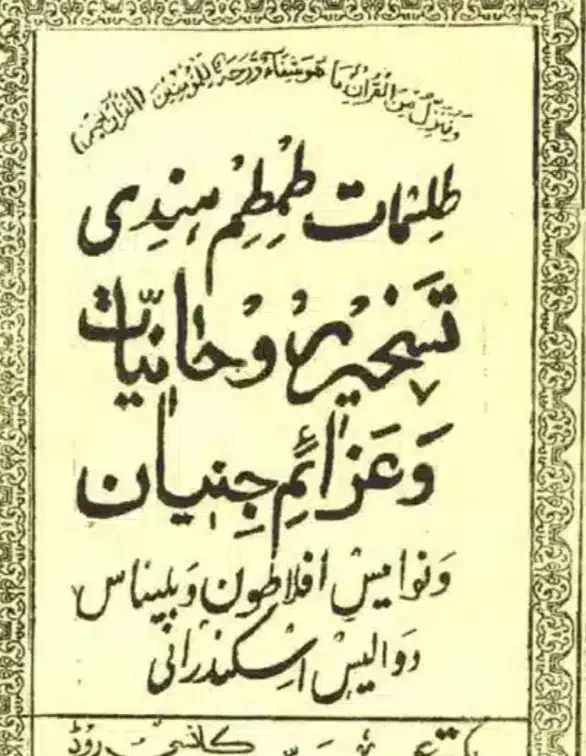 وَنُنَزِّلُ مِنَ الْقُرْآنِ مَا هُوَ شِفَاءٌ وَّرَحْمَةٌ لِّلْمُؤْمِنِينَ (القرآن
طلسمات طِمطِم ہِندِی
تسخیر روحانیّات
وَعَزائمِ جِنیان
وَنوامیسِ افلاطون وَبلیناس
ووالیس اسکندرانی
روڈ